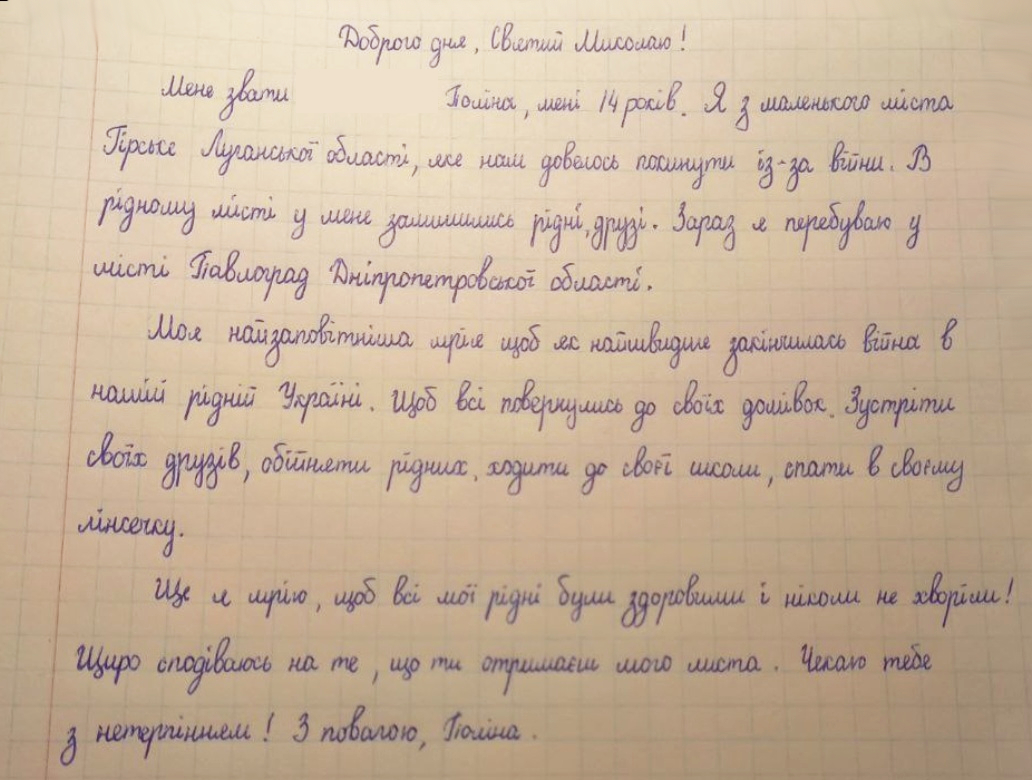 Доброго дня, Святий Миколаю!
Мене звати Поліна, мені 14 років. Я з маленького міста
Гірське Луганської області, яке нам довелось покинути із-за війни. В
рідному місті у мене залишились рідні, друзі. Зараз я перебуваю у
місті Павлоград Дніпропетровської області.
Моя найзаповітніша мрія щоб як найшвидше закінчилась війна в
нашій рідній Україні. Щоб всі повернулись до своїх домівок. Зустріти
своїх друзів, обійняти рідних, ходити до своєї школи, спати в своєму
ліжечку.
Ще я мрію, щоб всі мої рідні були здоровими і ніколи не хворіли!
Щиро сподіваюсь на те, що ти отримаєш мого листа. Чекаю тебе
з нетерпінням! З повагою, Поліна.